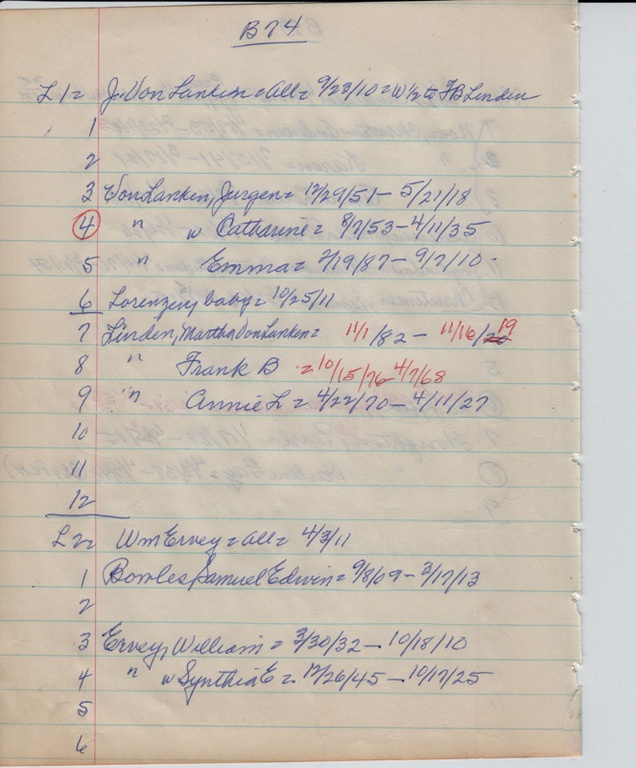 B74
L 1= J. VonLanken = all = 9/23/10 = W 1/2 to FB Linden
1
2
3 VonLanken, Jurgen = 12/29/51 - 5/21/18
4 " w Catharine = 8/7/53 - 4/11/35
5 " Emma = 2/19/87 - 9/7/10
6 Lorenzen, baby = 10/25/11
7 Linden, Martha VonLanken = 11/1/82 - 11/16/19
8 " Frank B = 10/15/76 - 4/7/68
9 " Annie L = 4/22/70 - 4/11/27
10
11
12
L 2= Wm Ervey = all = 4/3/11
1 Bowles Samuel Edwin = 9/8/09 - 3/17/13
2
3 Ervey, William = 3/30/32 - 10/18/10
4 " w Synthia E = 12/26/45 - 10/17/25
5
6